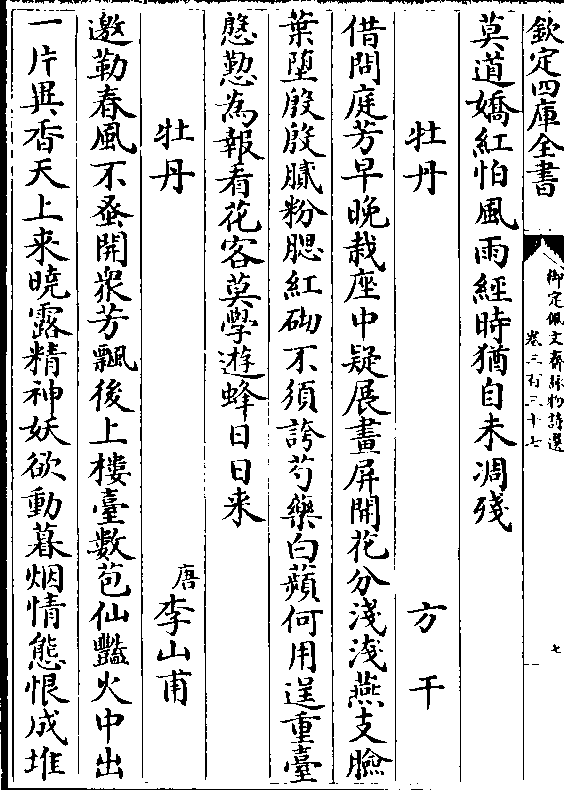 欽定四庫全書
御定佩文齋詠物詩選
卷三百三十七
七
莫道嬌紅怕風雨經時猶自未凋殘
牡丹
方干
借問庭芳早晚栽座中疑展畫屏開花分淺淺燕支臉
葉墮殷殷膩粉腮紅砌不須誇芍藥白蘋何用逞重臺
慇懃為報看花客莫學遊蜂日日来
牡丹
唐
李山甫
邀勒春風不蚤開衆芳飄後上樓臺數苞仙豔火中出
一片異香天上来曉露精神妖欲動暮烟情態恨成堆